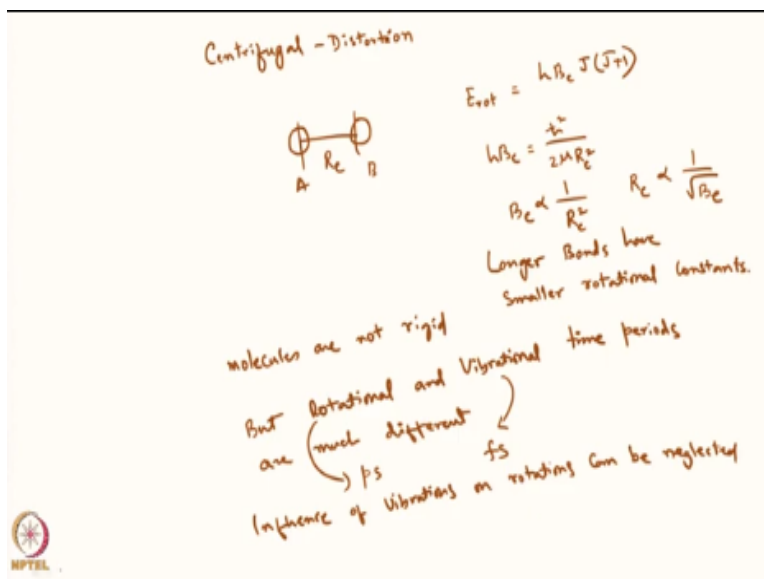 Centrifugal - Distortion
E_rot = hB_e J(J+1)
R_e
A B
hB_e = ħ² / 2μR_e²
B_e ∝ 1 / R_e²
R_e ∝ 1 / √B_e
Longer Bonds have
smaller rotational constants.
molecules are not rigid
But Rotational and Vibrational time periods
are much different
ps
fs
Influence of vibrations on rotations can be neglected
NPTEL